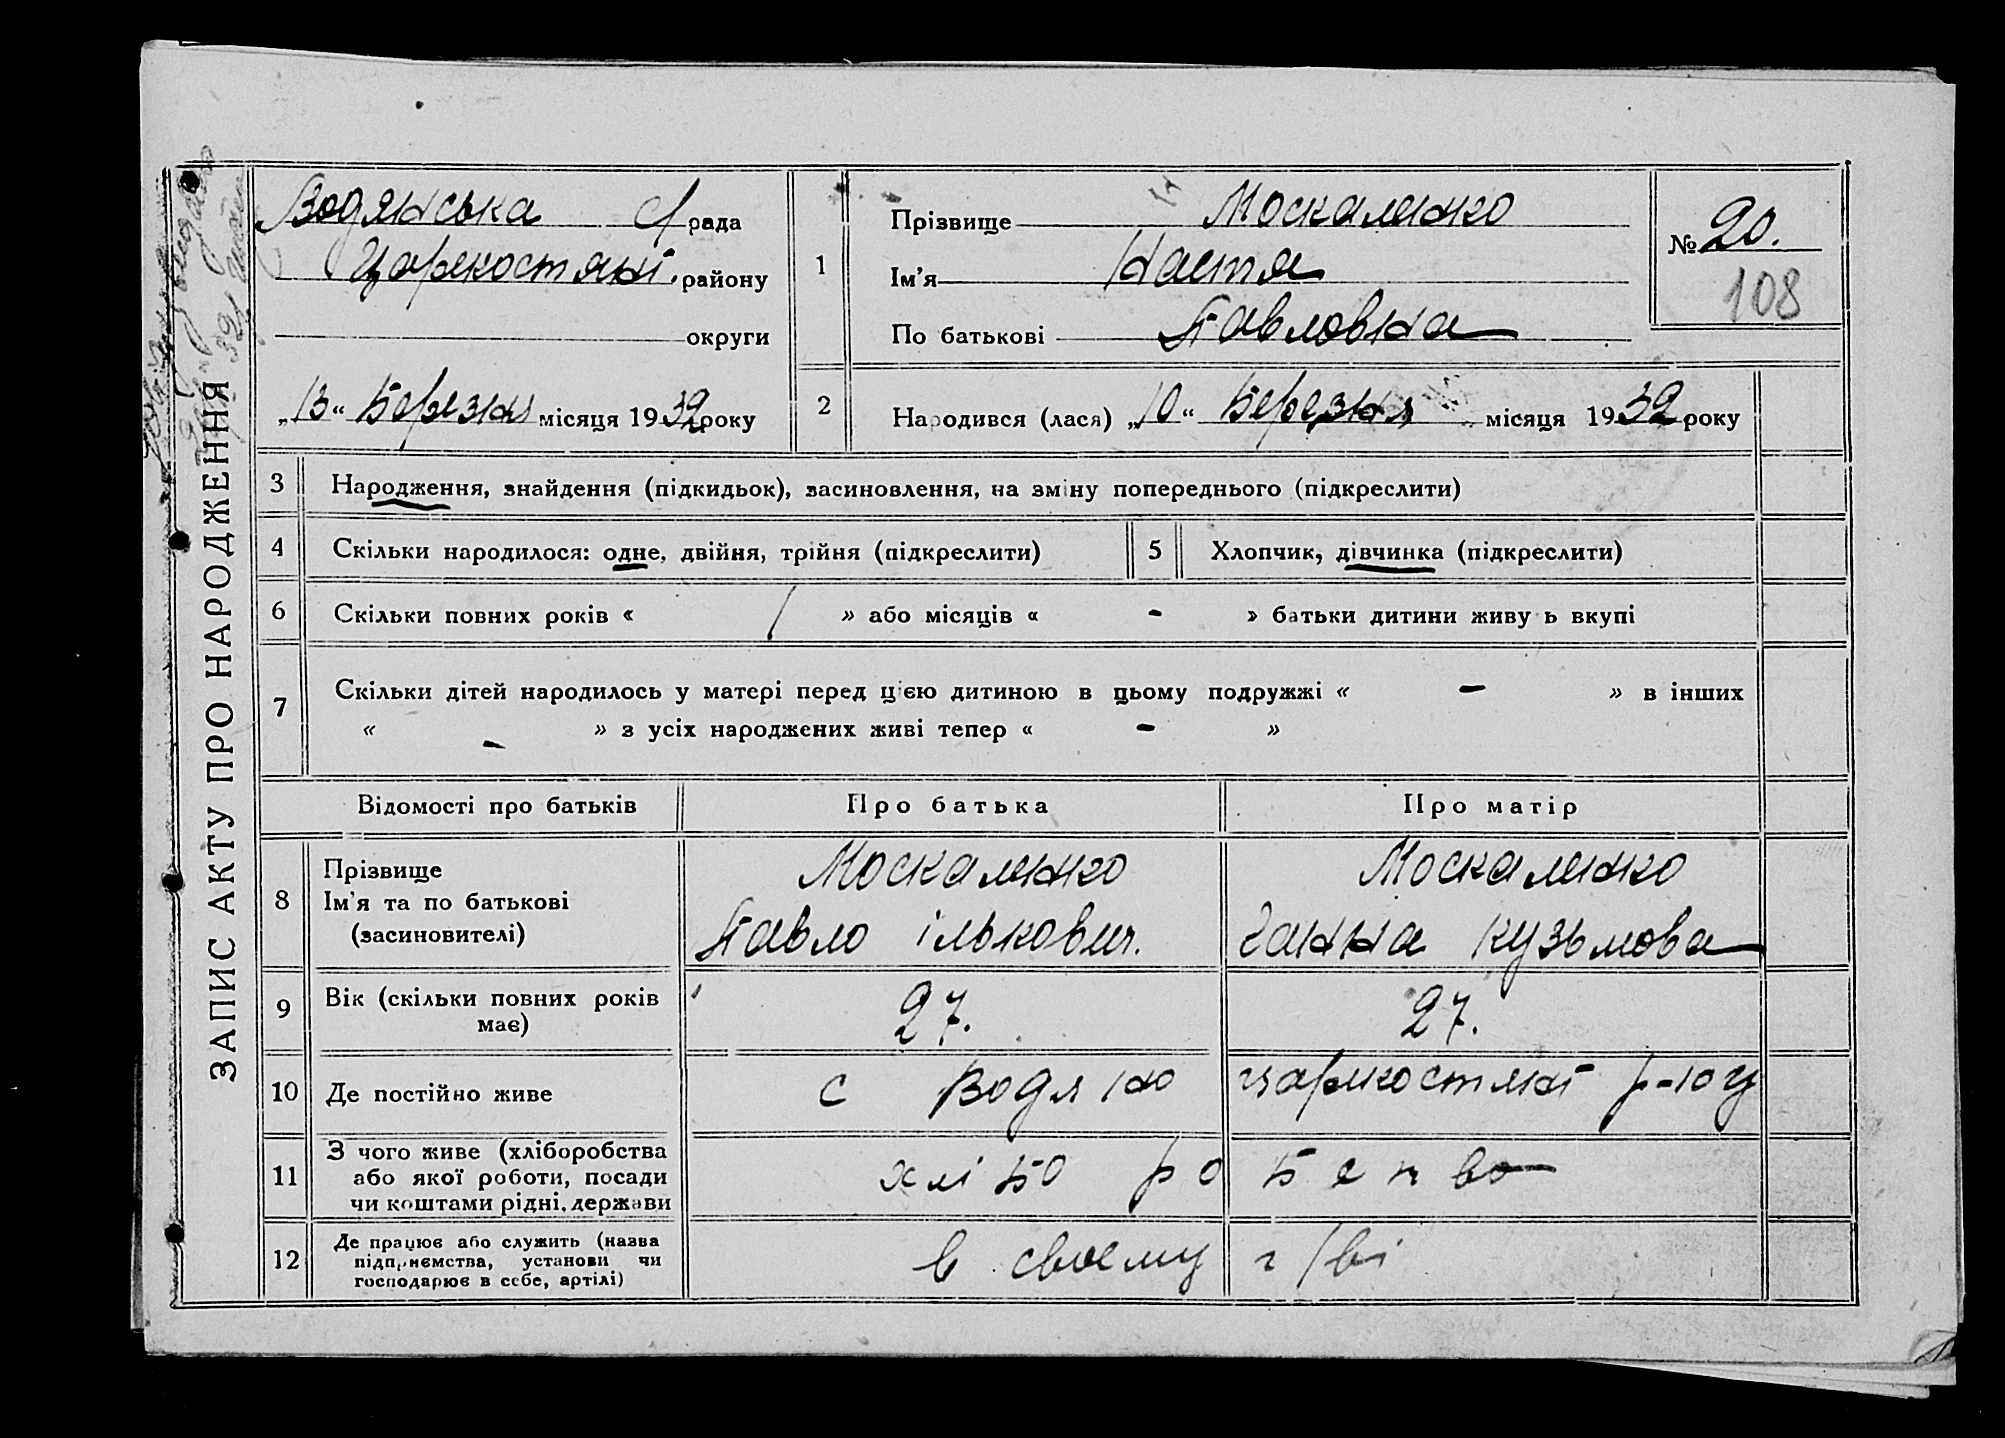 ЗАПИС АКТУ ПРО НАРОДЖЕННЯ
Водянська с/рада
Царекостянт. району
округи
„13“ Березня місяця 1932 року
1
Прізвище Москаленко
Ім’я Настя
По батькові Павловна
№ 20.
108
2
Народився (лася) „10“ Березня місяця 1932 року
3 Народження, знайдення (підкидьок), засиновлення, на зміну попереднього (підкреслити)
4 Скільки народилося: одне, двійня, трійня (підкреслити)
5 Хлопчик, дівчинка (підкреслити)
6 Скільки повних років « / » або місяців « - » батьки дитини живуть вкупі
7 Скільки дітей народилось у матері перед цією дитиною в цьому подружжі « - » в інших
« - » з усіх народжених живі тепер « - »
Відомості про батьків Про батька Про матір
8 Прізвище
Ім’я та по батькові
(засиновителі)
Москаленко
Павло ількович.
Москаленко
Ганна кузьмова
9 Вік (скільки повних років
має)
27.
27.
10 Де постійно живе
с Водяно Царекостянт р-ну
11 З чого живе (хліборобства
або якої роботи, посади
чи коштами рідні, держави
хліборобство
12 Де працює або служить (назва
підприємства, установи чи
господарює в себе, артілі)
в своєму г/ві